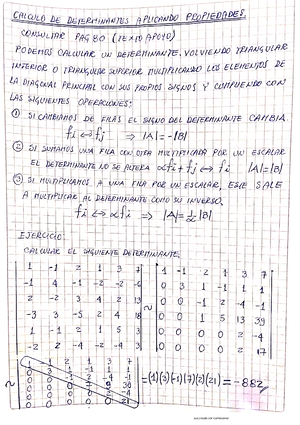 CALCULO DE DETERMINANTES APLICANDO PROPIEDADES.
CONSULTAR PAG 80 (TEXTO APOYO)
PODEMOS CALCULAR UN DETERMINANTE, VOLVIENDO TRIANGULAR
INFERIOR O TRIANGULAR SUPERIOR MULTIPLICANDO LOS ELEMENTOS DE
LA DIAGONAL PRINCIPAL CON SUS PROPIOS SIGNOS Y CUMPLIENDO CON
LAS SIGUIENTES OPERACIONES:
① SI CAMBIAMOS DE FILAS EL SIGNO DEL DETERMINANTE CAMBIA.
fi ↔ fj ⇒ |A| = -|B|
② SI SUMAMOS UNA FILA CON OTRA MULTIPLICADA POR UN ESCALAR
EL DETERMINANTE NO SE ALTERA αfi + fj ↔ fi |A| = |B|
③ SI MULTIPLICAMOS A UNA FILA POR UN ESCALAR, ESTE SALE
A MULTIPLICAR AL DETERMINANTE COMO SU INVERSO.
fi ↔ αfi ⇒ |A| = 1/α |B|
EJERCICIO:
CALCULAR EL SIGUIENTE DETERMINANTE.
1 -1 2 1 3 7
-1 4 -1 -2 -2
2 -2 3 4 2 13
-3 3 -5 2 4 18
1 -1 2 1 5 3
-2 2 -4 -2 -4 3
~
1 -1 2 1 3 7
0 3 1 -1 1
0 0 -1 2
0 0 1 5 13 39
0 0 0 0 2 -4
0 0 0 0 2 17
~
1 -1 2 1 3 7
= (1)(3)(-1)(7)(2)(21) = -882